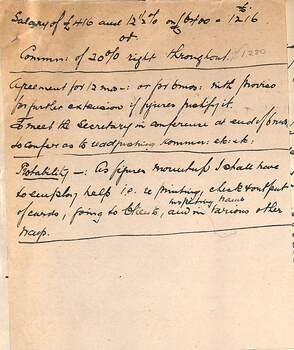 Salary of £416 and 12½% on £6400 = £1216
or
Commn: of 20% right throughout. £1280
Agreement for 12 mos—: or for 6 mos: with proviso
for further extension if figures justify it.
To meet the Secretary in conference at end of 6 mos,
to confer as to adjusting Commn: etc: etc:
Probability —: As figures mount up I shall have
to employ help i.e. re printing, check output
of cards, going to Clients, inspecting frames and in various other
ways.